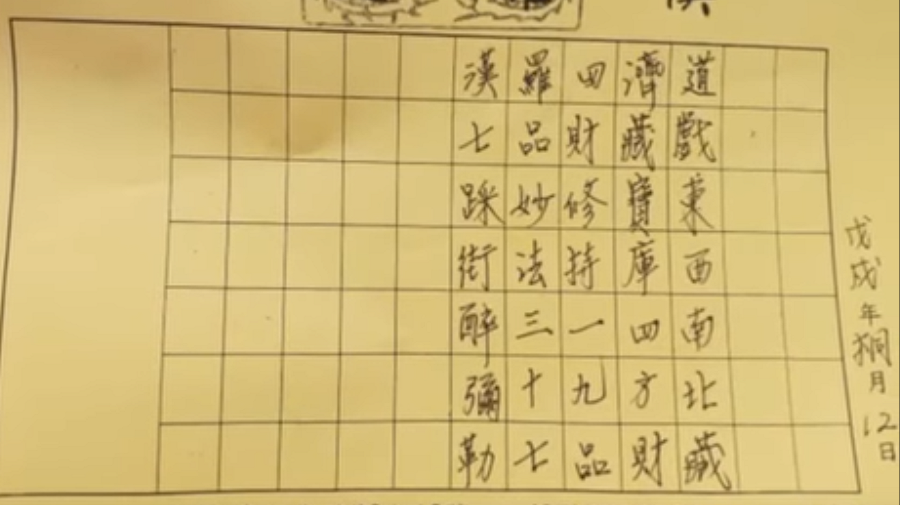 戊戌年桐月12日
道戲東西南北藏
濟藏寶庫四方財
四財修持一九品
羅品妙法三十七
漢七踩街醉彌勒